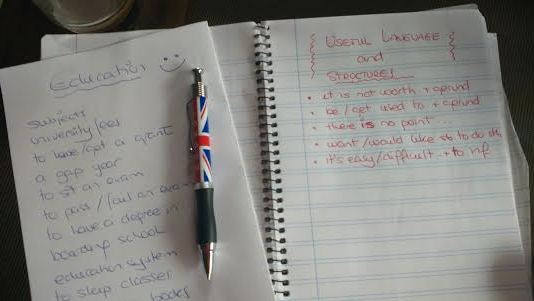 Education
subjects
university fees
to have/get a grant
a gap year
to sit an exam
to pass/fail an exa
to have a degree in
boarding school
education system
to skip classes
books
USEFUL LANGUAGE
and
STRUCTURES
• it is not worth + gerund
• be/get used to + gerund
• there is no point...
• want/would like sb. to do sth
• it's easy/difficult + to inf